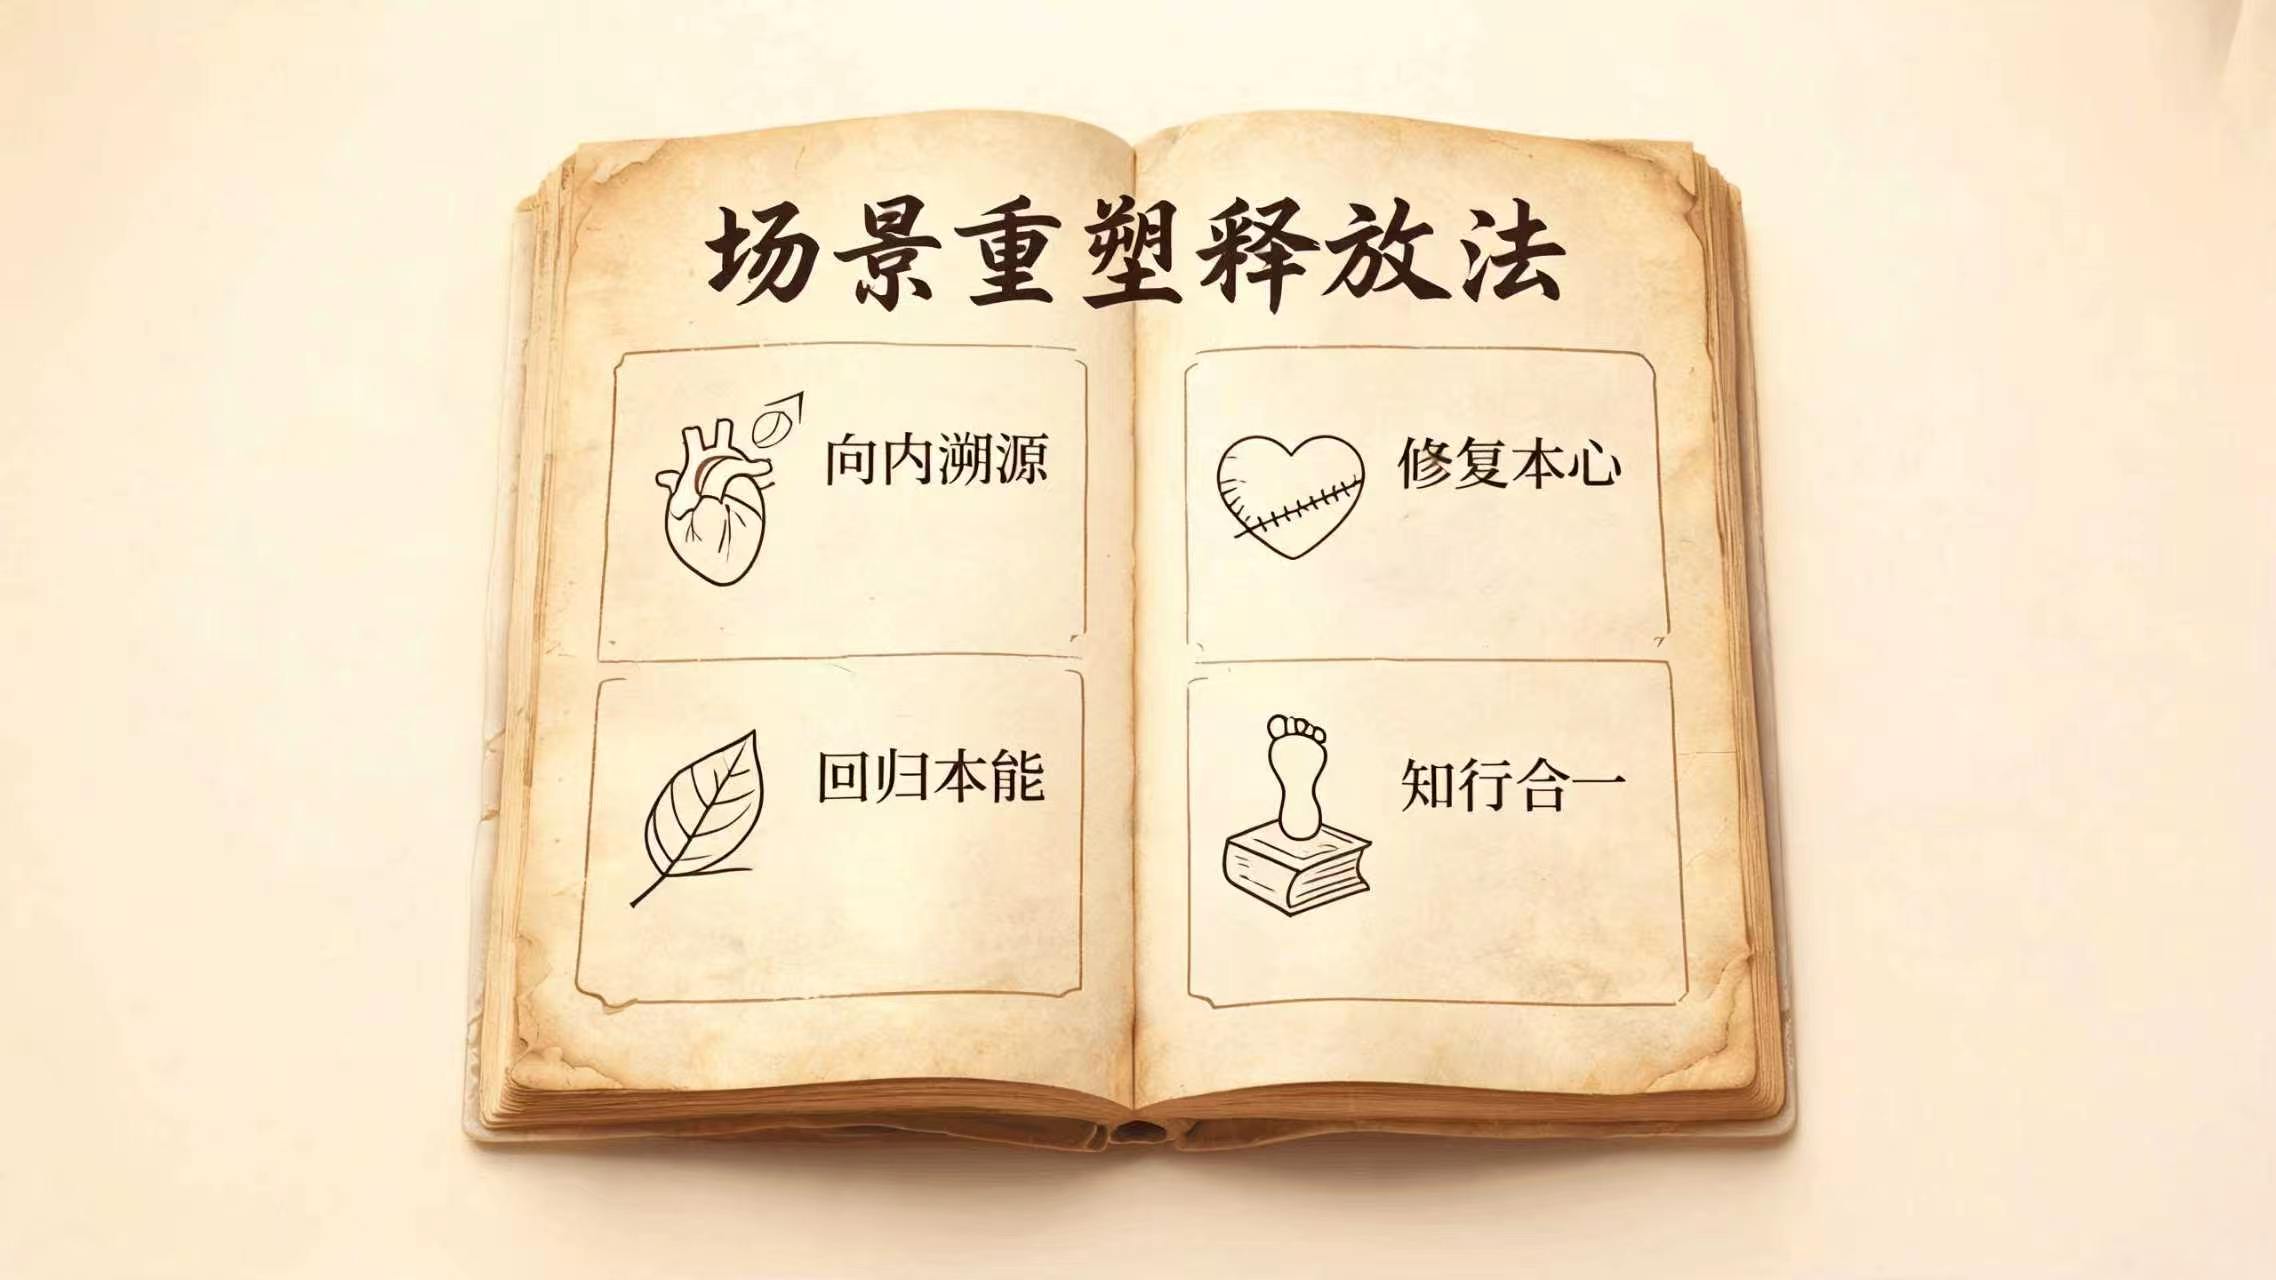 场景重塑释放法
向内溯源
修复本心
回归本能
知行合一